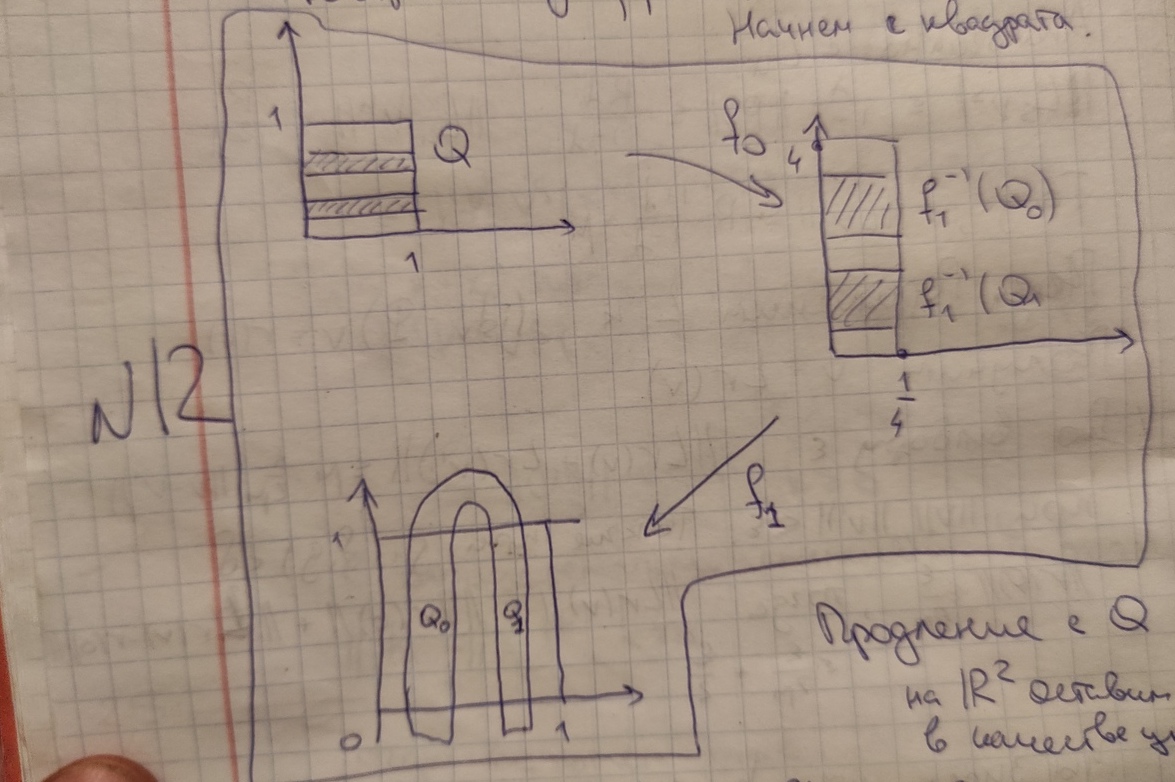 Начнем с квадрата.
1
Q
1
f₀
4
f₁⁻¹(Q₀)
f₁⁻¹(Q₁
1/4
N12
f₁
1
Q₀ Q₁
0 1
Продление с Q
на ℝ² оставим
в качестве